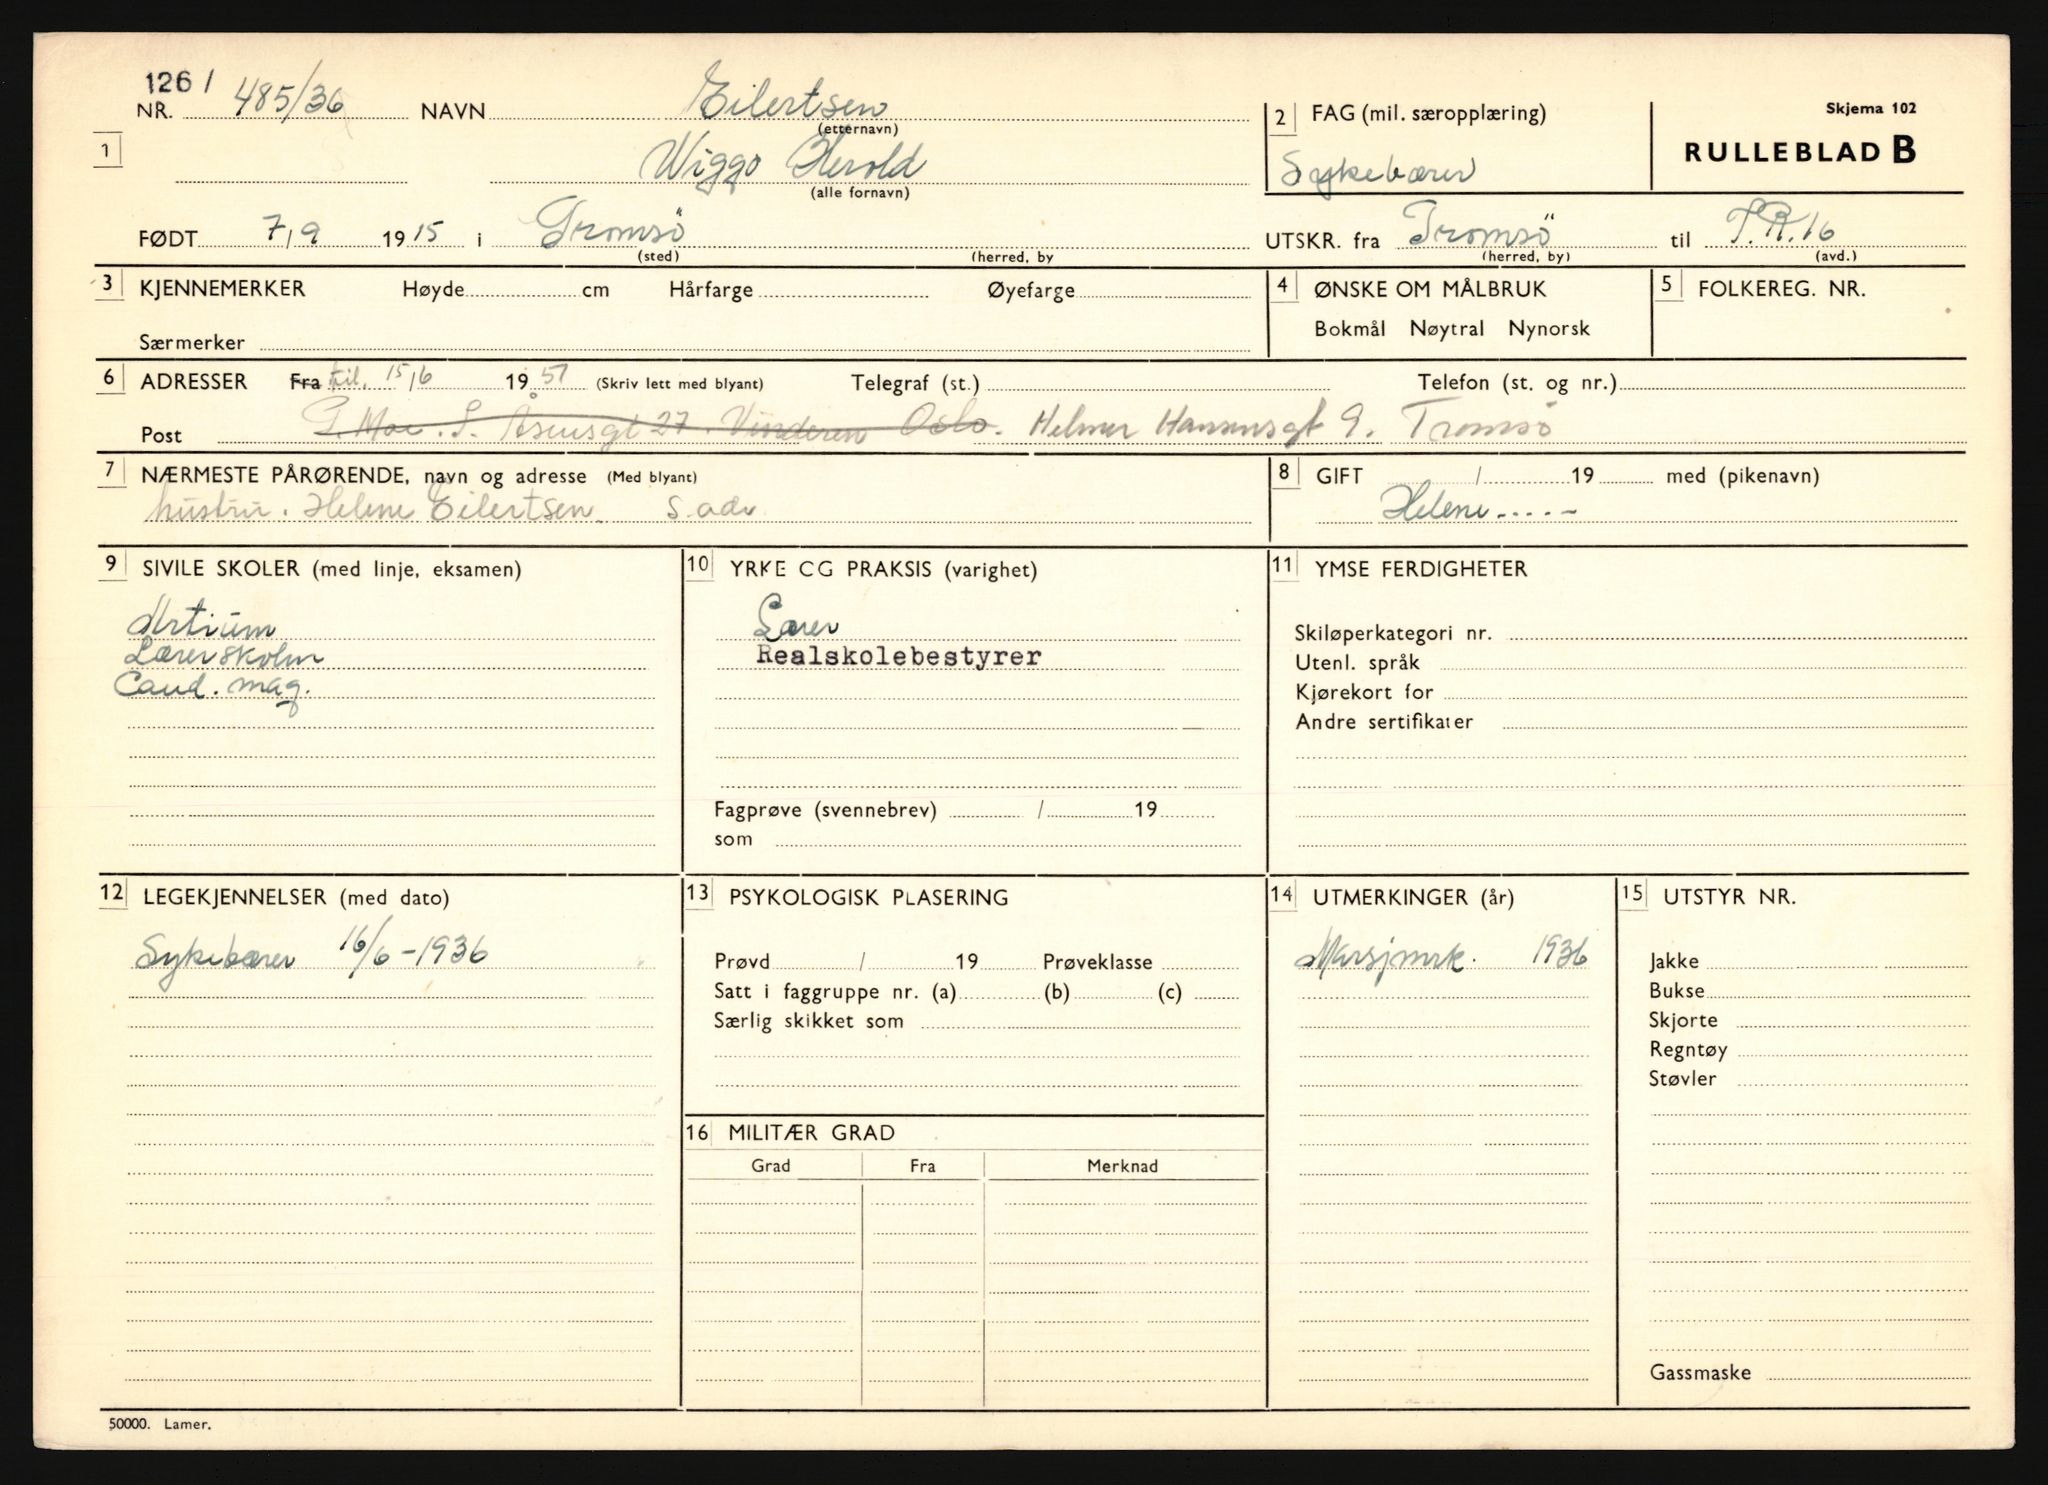 126 /
NR. 485/36 NAVN Eilertsen
(etternavn)
1
Wiggo Herold
(alle fornavn)
2 FAG (mil. særopplæring)
Sykebærer
Skjema 102
RULLEBLAD B
FØDT 7/9 1915 i Tromsö
(sted) (herred, by
UTSKR. fra Tromsö til T.R.16
(herred, by) (avd.)
3 KJENNEMERKER Høyde cm Hårfarge Øyefarge
Særmerker
4 ØNSKE OM MÅLBRUK
Bokmål Nøytral Nynorsk
5 FOLKEREG. NR.
6 ADRESSER Fra til. 15/6 1957 (Skriv lett med blyant) Telegraf (st.) Telefon (st. og nr.)
Post P. Moe. S. Åsensgt 27. Vinderen Oslo. Helmer Hansensgt 9. Tromsö
7 NÆRMESTE PÅRØRENDE, navn og adresse (Med blyant)
hustru. Helene Eilertsen s. adr.
8 GIFT / 19 med (pikenavn)
Helene.....
9 SIVILE SKOLER (med linje, eksamen)
Artium
Lærerskolen
Cand. mag.
10 YRKE CG PRAKSIS (varighet)
Lærer
Realskolebestyrer
Fagprøve (svennebrev) / 19
som
11 YMSE FERDIGHETER
Skiløperkategori nr.
Utenl. språk
Kjørekort for
Andre sertifikater
12 LEGEKJENNELSER (med dato)
Sykebærer 16/6-1936
13 PSYKOLOGISK PLASERING
Prøvd / 19 Prøveklasse
Satt i faggruppe nr. (a) (b) (c)
Særlig skikket som
14 UTMERKINGER (år)
Marsjmrk. 1936
15 UTSTYR NR.
Jakke
Bukse
Skjorte
Regntøy
Støvler
Gassmaske
16 MILITÆR GRAD
Grad Fra Merknad
50000. Lamer.